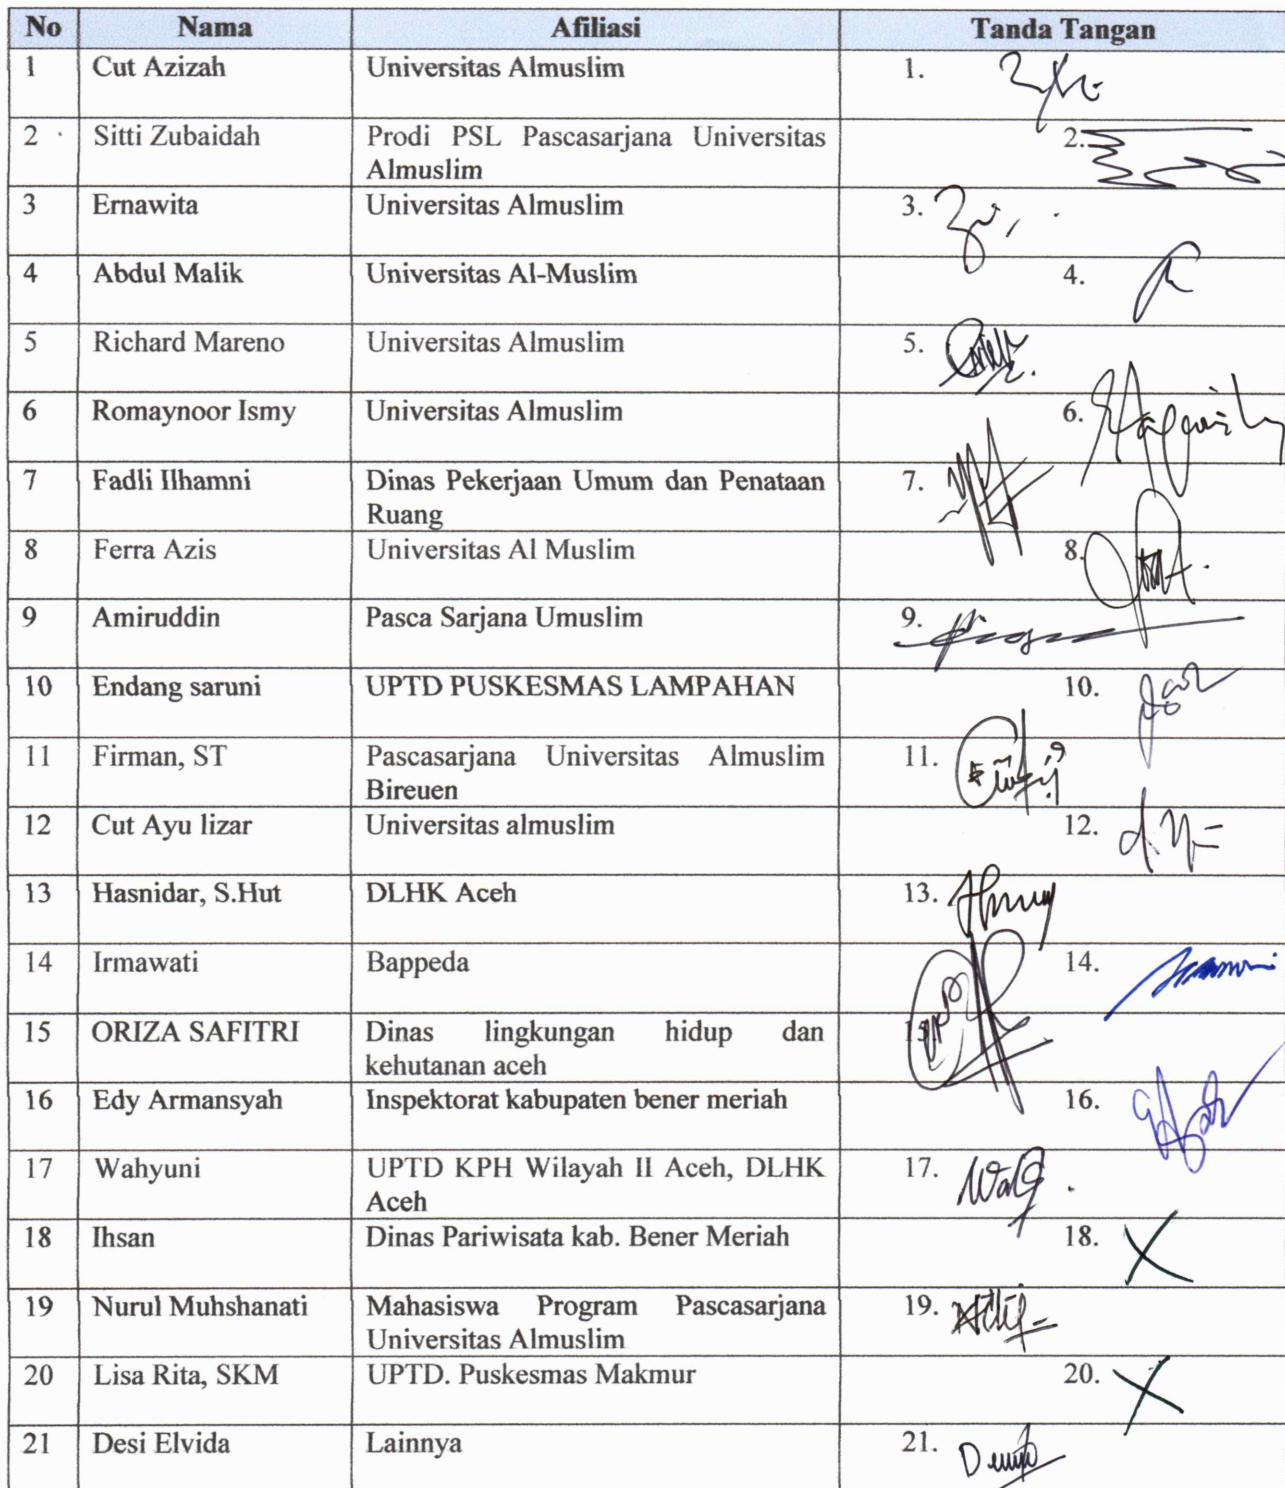 No Nama Afiliasi Tanda Tangan
1 Cut Azizah Universitas Almuslim 1.
2 Sitti Zubaidah Prodi PSL Pascasarjana Universitas 2.
Almuslim
3 Ernawita Universitas Almuslim 3.
4 Abdul Malik Universitas Al-Muslim 4.
5 Richard Mareno Universitas Almuslim 5.
6 Romaynoor Ismy Universitas Almuslim 6.
7 Fadli Ilhamni Dinas Pekerjaan Umum dan Penataan 7.
Ruang
8 Ferra Azis Universitas Al Muslim 8.
9 Amiruddin Pasca Sarjana Umuslim 9.
10 Endang saruni UPTD PUSKESMAS LAMPAHAN 10.
11 Firman, ST Pascasarjana Universitas Almuslim 11.
Bireuen
12 Cut Ayu lizar Universitas almuslim 12.
13 Hasnidar, S.Hut DLHK Aceh 13.
14 Irmawati Bappeda 14.
15 ORIZA SAFITRI Dinas lingkungan hidup dan 15.
kehutanan aceh
16 Edy Armansyah Inspektorat kabupaten bener meriah 16.
17 Wahyuni UPTD KPH Wilayah II Aceh, DLHK 17.
Aceh
18 Ihsan Dinas Pariwisata kab. Bener Meriah 18.
19 Nurul Muhshanati Mahasiswa Program Pascasarjana 19.
Universitas Almuslim
20 Lisa Rita, SKM UPTD. Puskesmas Makmur 20.
21 Desi Elvida Lainnya 21.